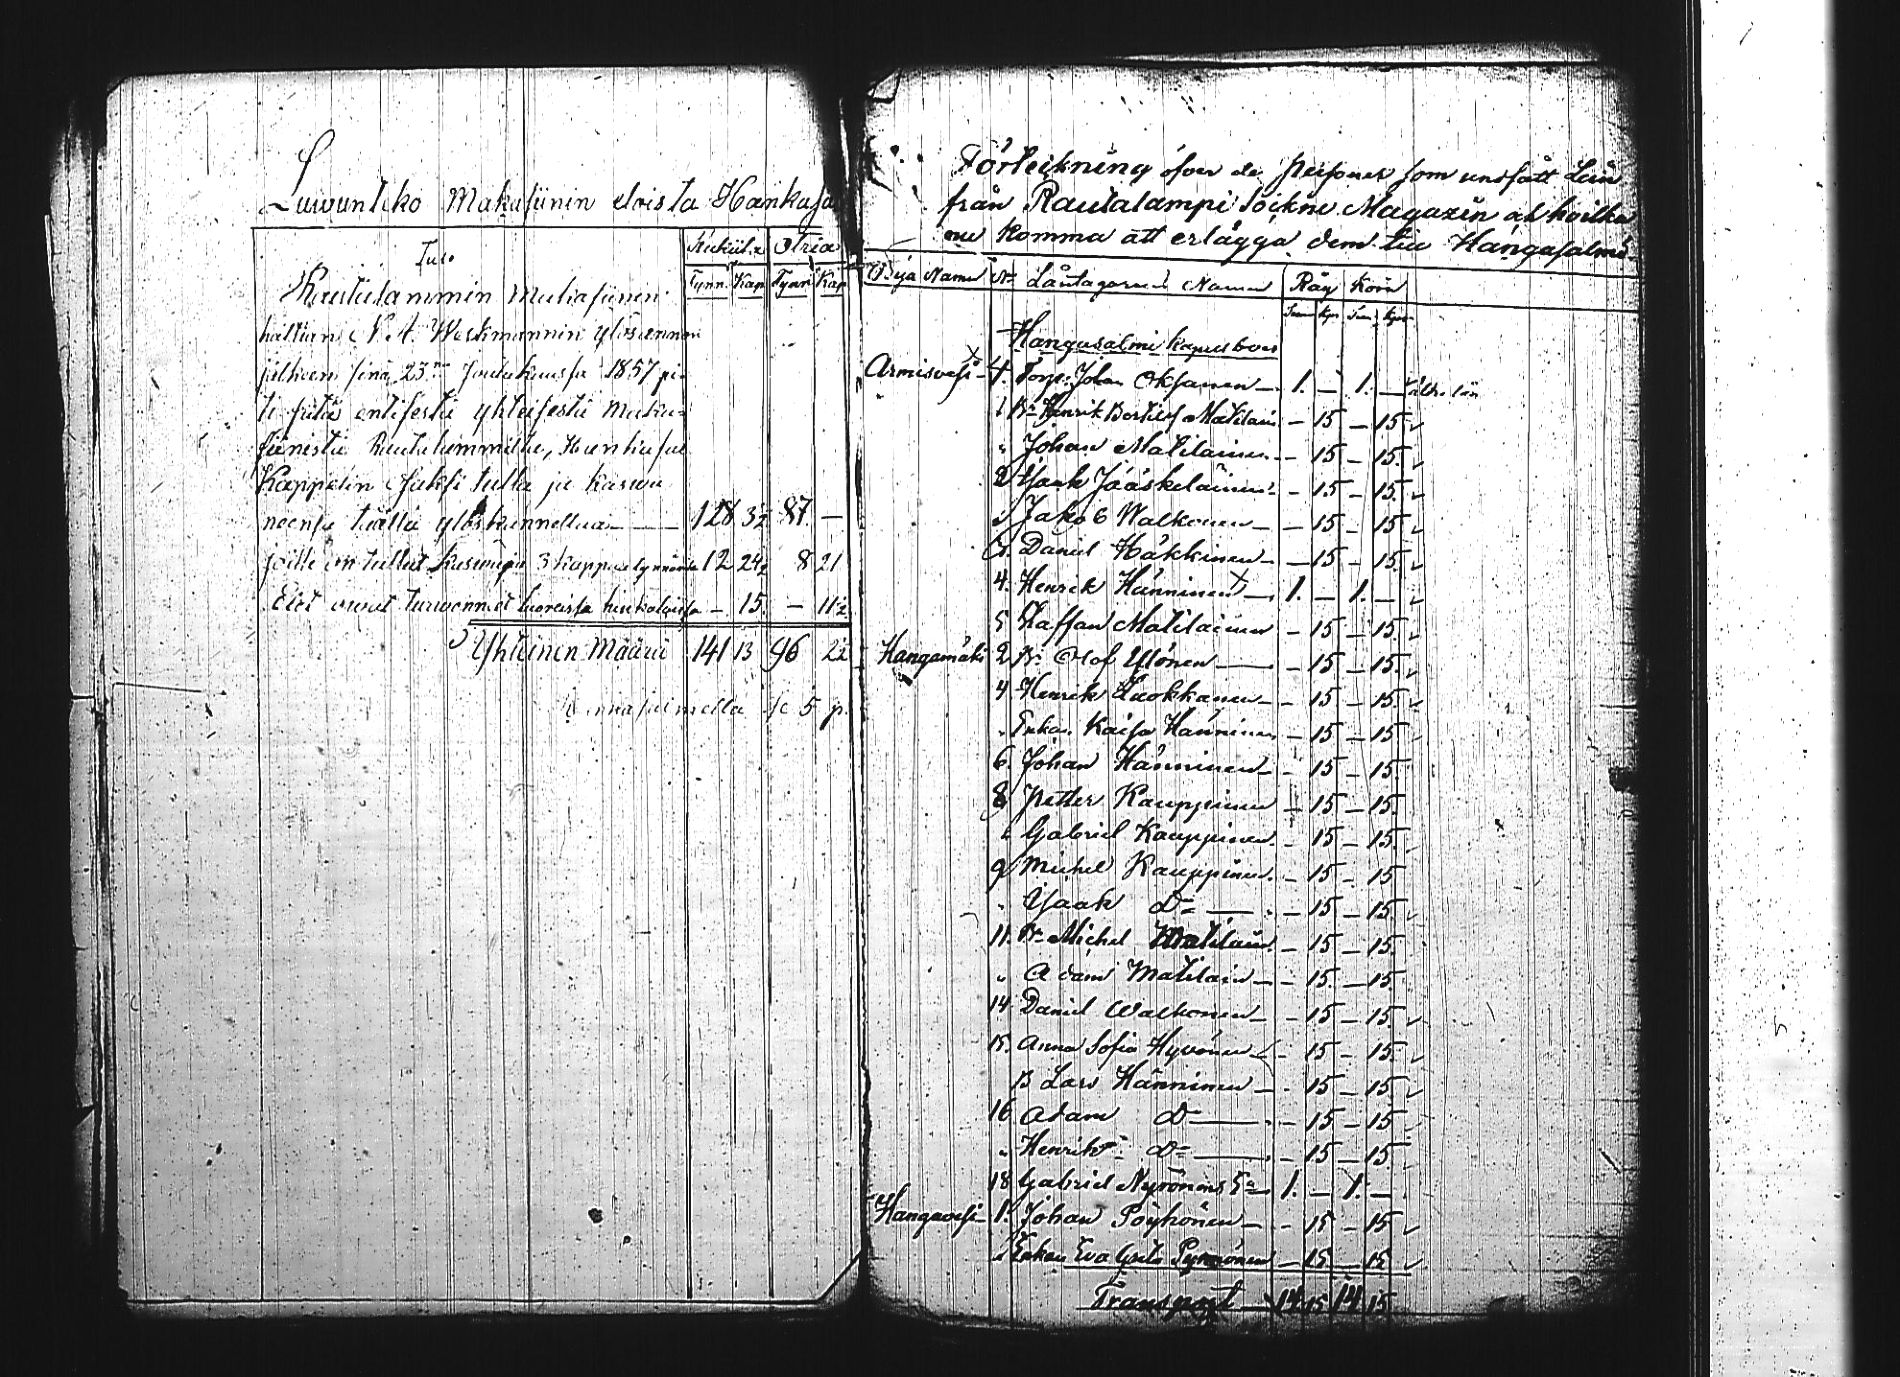 Luwunteko Makasiinin eloista Hankasa
Tulo
Rukiita Ohria
Tynn. Kap Tynn Kap
Rautalammin Makasiinin
haltian N. A. Weckmannin ylösannon
jälkeen sinä 23 Joulukuussa 1857 pi-
ti pitä entisestä yhteisestä Maka-
siinistä Rautalammilta, Hankasal
Kappelin Osaksi tulla ja kaswu
neensa täällä ylöskannettua — 128 3½ 87 —
joille on tullut kaswuja 3 kappaa tynnörilä 12 24½ 8 21
Elot owat turwonnet tuoreissa hinkaloissa — 15. — 11½
Yhteinen Määrä 141 13 96 2½
5 p.
Förteckning öfver de Personer som undfått Lån
från Rautalampi Sockne Magazin at hvilka
nu komma att erlägga dem till Hangasalmi
Byа Namn No Låntagarnes Namn Råg Korn
Tunn Kpr Tun Kpr
Hangasalmi Kapellboer
Armisvesi 4. Torp. Johan Oksanen — 1. — 1. —
1 Bn Henrik Bertilsf Matilain — 15 — 15
" Johan Matilainen — 15 — 15
2 Isaak Jääskeläinen — 15 — 15
" Jakob Walkonen — 15 — 15
3. Daniel Häkkinen — 15 — 15
4. Henrik Hänninen 1. — 1. —
5 Staffan Matilainen — 15 — 15
Hangamäki 2 Bn Olof Ylönen — 15 — 15
4 Henrik Luokkanen — 15 — 15
" Enkan Kaisa Hänninen — 15 — 15
6. Johan Hänninen — 15 — 15
8 Petter Kauppinen — 15 — 15
" Gabriel Kauppinen — 15 — 15
9 Michel Kauppinen — 15 — 15
" Isaak Do — 15 — 15
11. Bn Michel Matilain — 15 — 15
" Adam Matilain — 15 — 15
14 Daniel Walkonen — 15 — 15
15. Anna Sofia Hyvönen — 15 — 15
B Lars Hänninen — 15 — 15
16 Adam Do — 15 — 15
" Henrik Do — 15 — 15
18 Gabriel Nyrönens 1. — 1. —
Hangavesi 1. Johan Pöyhönen — 15 — 15
" Enkan Eva Greta Pynnönen — 15 — 15
Transport 14 15 14 15